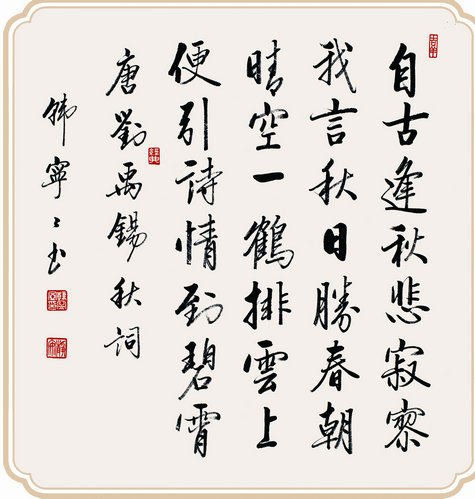 自古逢秋悲寂寥
我言秋日勝春朝
晴空一鶴排雲上
便引詩情到碧霄
唐劉禹錫秋詞
韩寧〻书